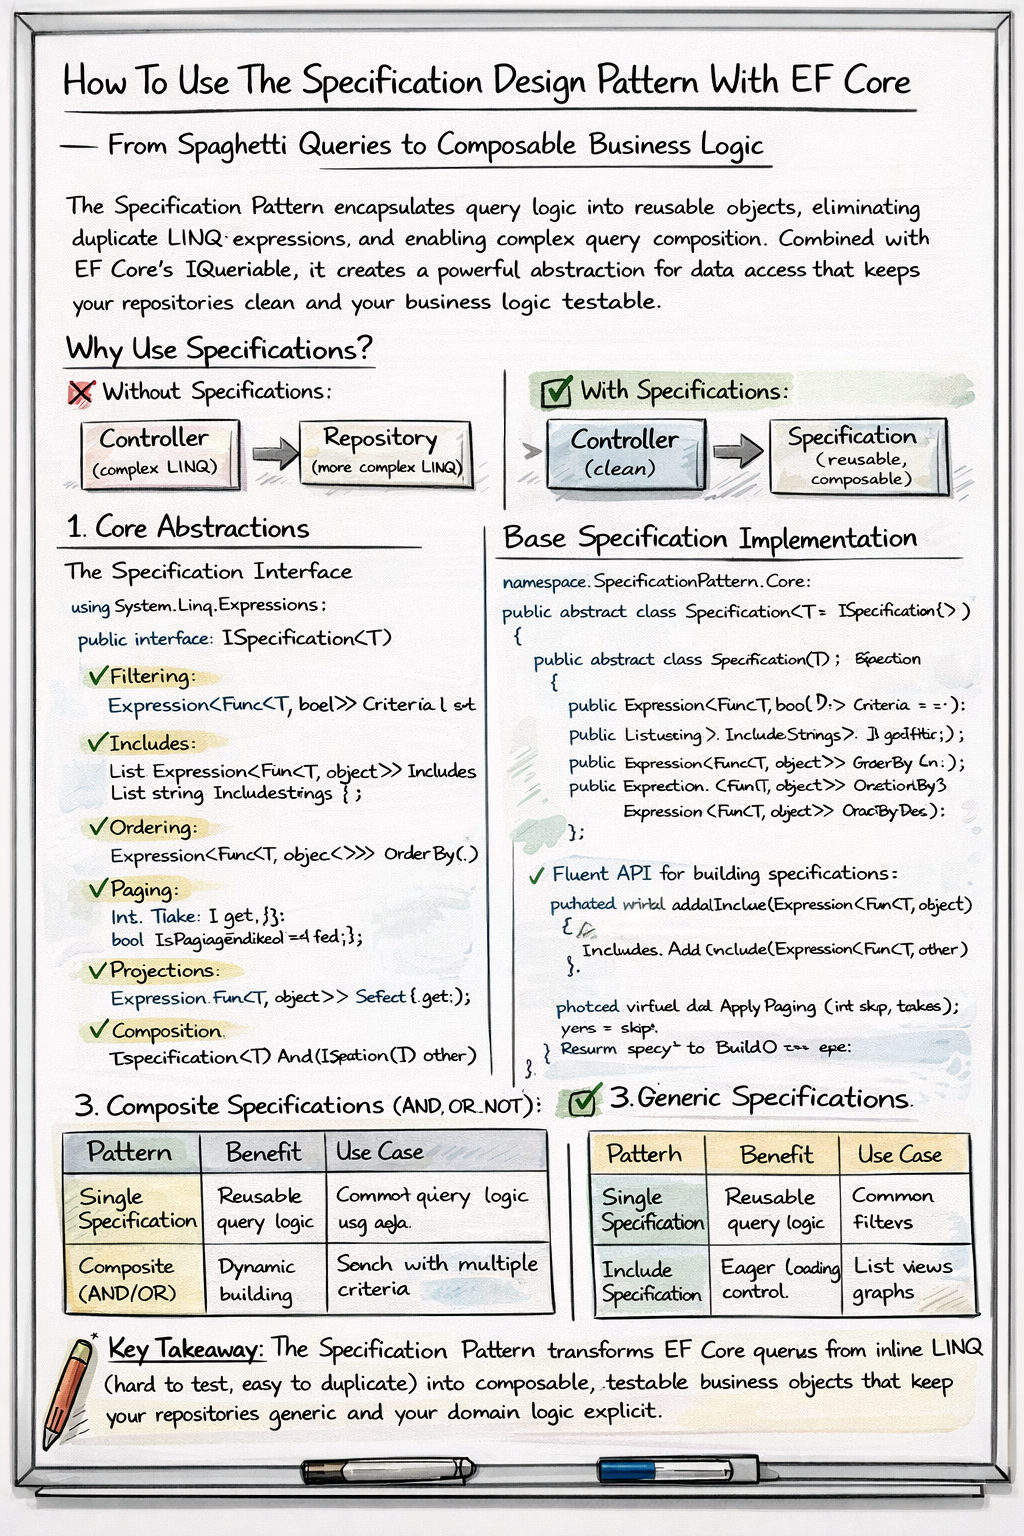 How To Use The Specification Design Pattern With EF Core
— From Spaghetti Queries to Composable Business Logic
The Specification Pattern encapsulates query logic into reusable objects, eliminating
duplicate LINQ expressions, and enabling complex query composition. Combined with
EF Core's IQueriable, it creates a powerful abstraction for data access that keeps
your repositories clean and your business logic testable.
Why Use Specifications?
Without Specifications:
Controller
(complex LINQ)
Repository
(more complex LINQ)
With Specifications:
Controller
(clean)
Specification
(reusable,
composable)
1. Core Abstractions
The Specification Interface
using System.Linq.Expressions;
public interface: ISpecification<T)
✓Filtering:
Expression<Func<T, boel>> Criteria
✓Includes:
List Expression<Fun<T, object>> Includes
List string Includestrings { ;
✓Ordering:
Expression<Func<T, objec<>>> OrderBy(.)
✓Paging:
Int. Tiake: I get, }};
bool
✓Projections:
Expression.Fun<T, object>> Sefect{.get:);
✓Composition.
Tspecification<T) And(ISpeation(T) other)
Base Specification Implementation
namespace.SpecificationPattern.Core:
public abstract class Specification<T= ISpecification{> )
{
public abstract class Specification(T);
{
public Expression<Func<T, bool Criteria = =·):
public Listuseing>. IncludeStrings>.
public Expression<Func<T, object>> GrderBy
public Exprection. <Fun(T, object>> OnetionBy3
Expression <Fun<T, object>> OraciByDes):
};
✓ Fluent API for building specifications:
puhated addalInclue(Expression<Fun<T, object)
{
Includes. Add (nclude(Expression<Fun<T, other)
}.
photced virfuel dal Apply Paging (int skip, takes);
yers = skip.
} Resurm specy to BuildO epe:
}.
3. Composite Specifications (AND, OR. NOT):
Pattern Benefit Use Case
Single Specification Reusable query logic Commot qiery logic usg
Composite (AND/OR) Dynamic building Sonch with multiple criteria
3. Generic Specifications.
Patterh Benefit Use Case
Single Specification Reusable query logic Common filters
Include Specification Eager loading control. List views graphs
Key Takeaway: The Specification Pattern transforms EF Core querus from inline LINQ
(hard to test, easy to duplicate) into composable, testable business objects that keep
your repositories generic and your domain logic explicit.